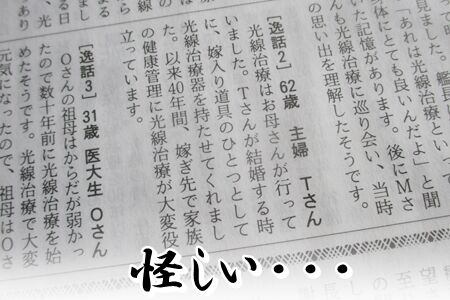 見ました。艦長に
あれは光線治療とい
身体にとても良いんだよ」と聞
いた記憶があります。後にMさ
んも光線治療に巡り会い、当時
の思い出を理解したそうです。
[逸話2] 62歳 主婦 Tさん
光線治療はお母さんが行って
いました。Tさんが結婚する時
に、嫁入り道具のひとつとして
光線治療器を持たせてくれまし
た。以来40年間、嫁ぎ先で家族
の健康管理に光線治療が大変役
立っています。
[逸話3] 31歳 医大生 Oさん
Oさんの祖母はからだが弱かっ
たので数十年前に光線治療を始
めたそうです。光線治療で大変
元気になったので、祖母はOさ
怪しい・・・